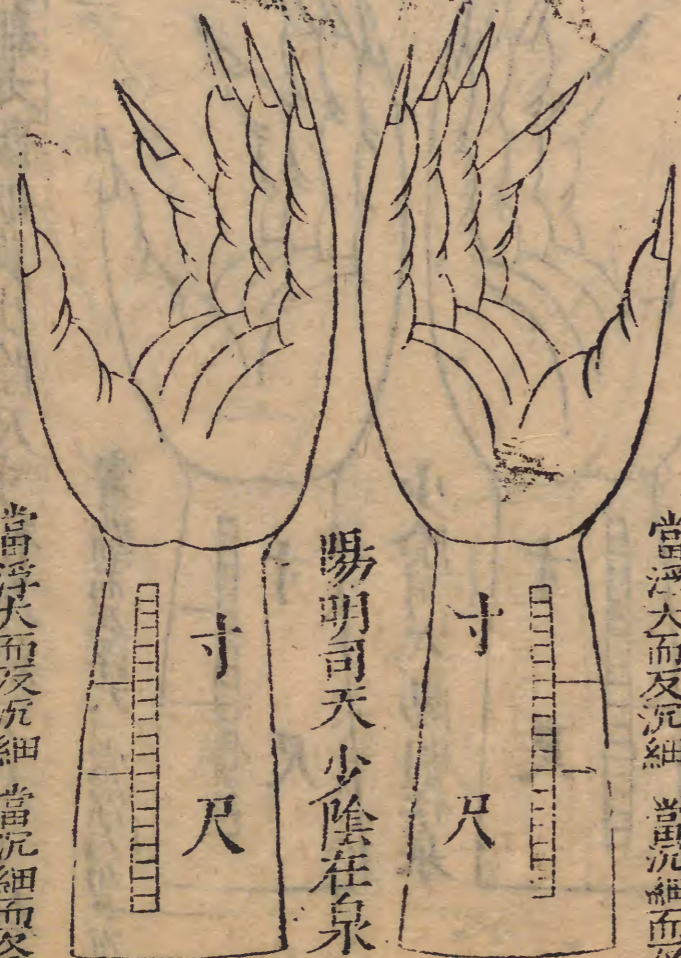 當浮大而反沉細 當沉細而
寸
尺
陽明司天 少陰在泉
寸
尺
當浮大而反沉細 當沉細而